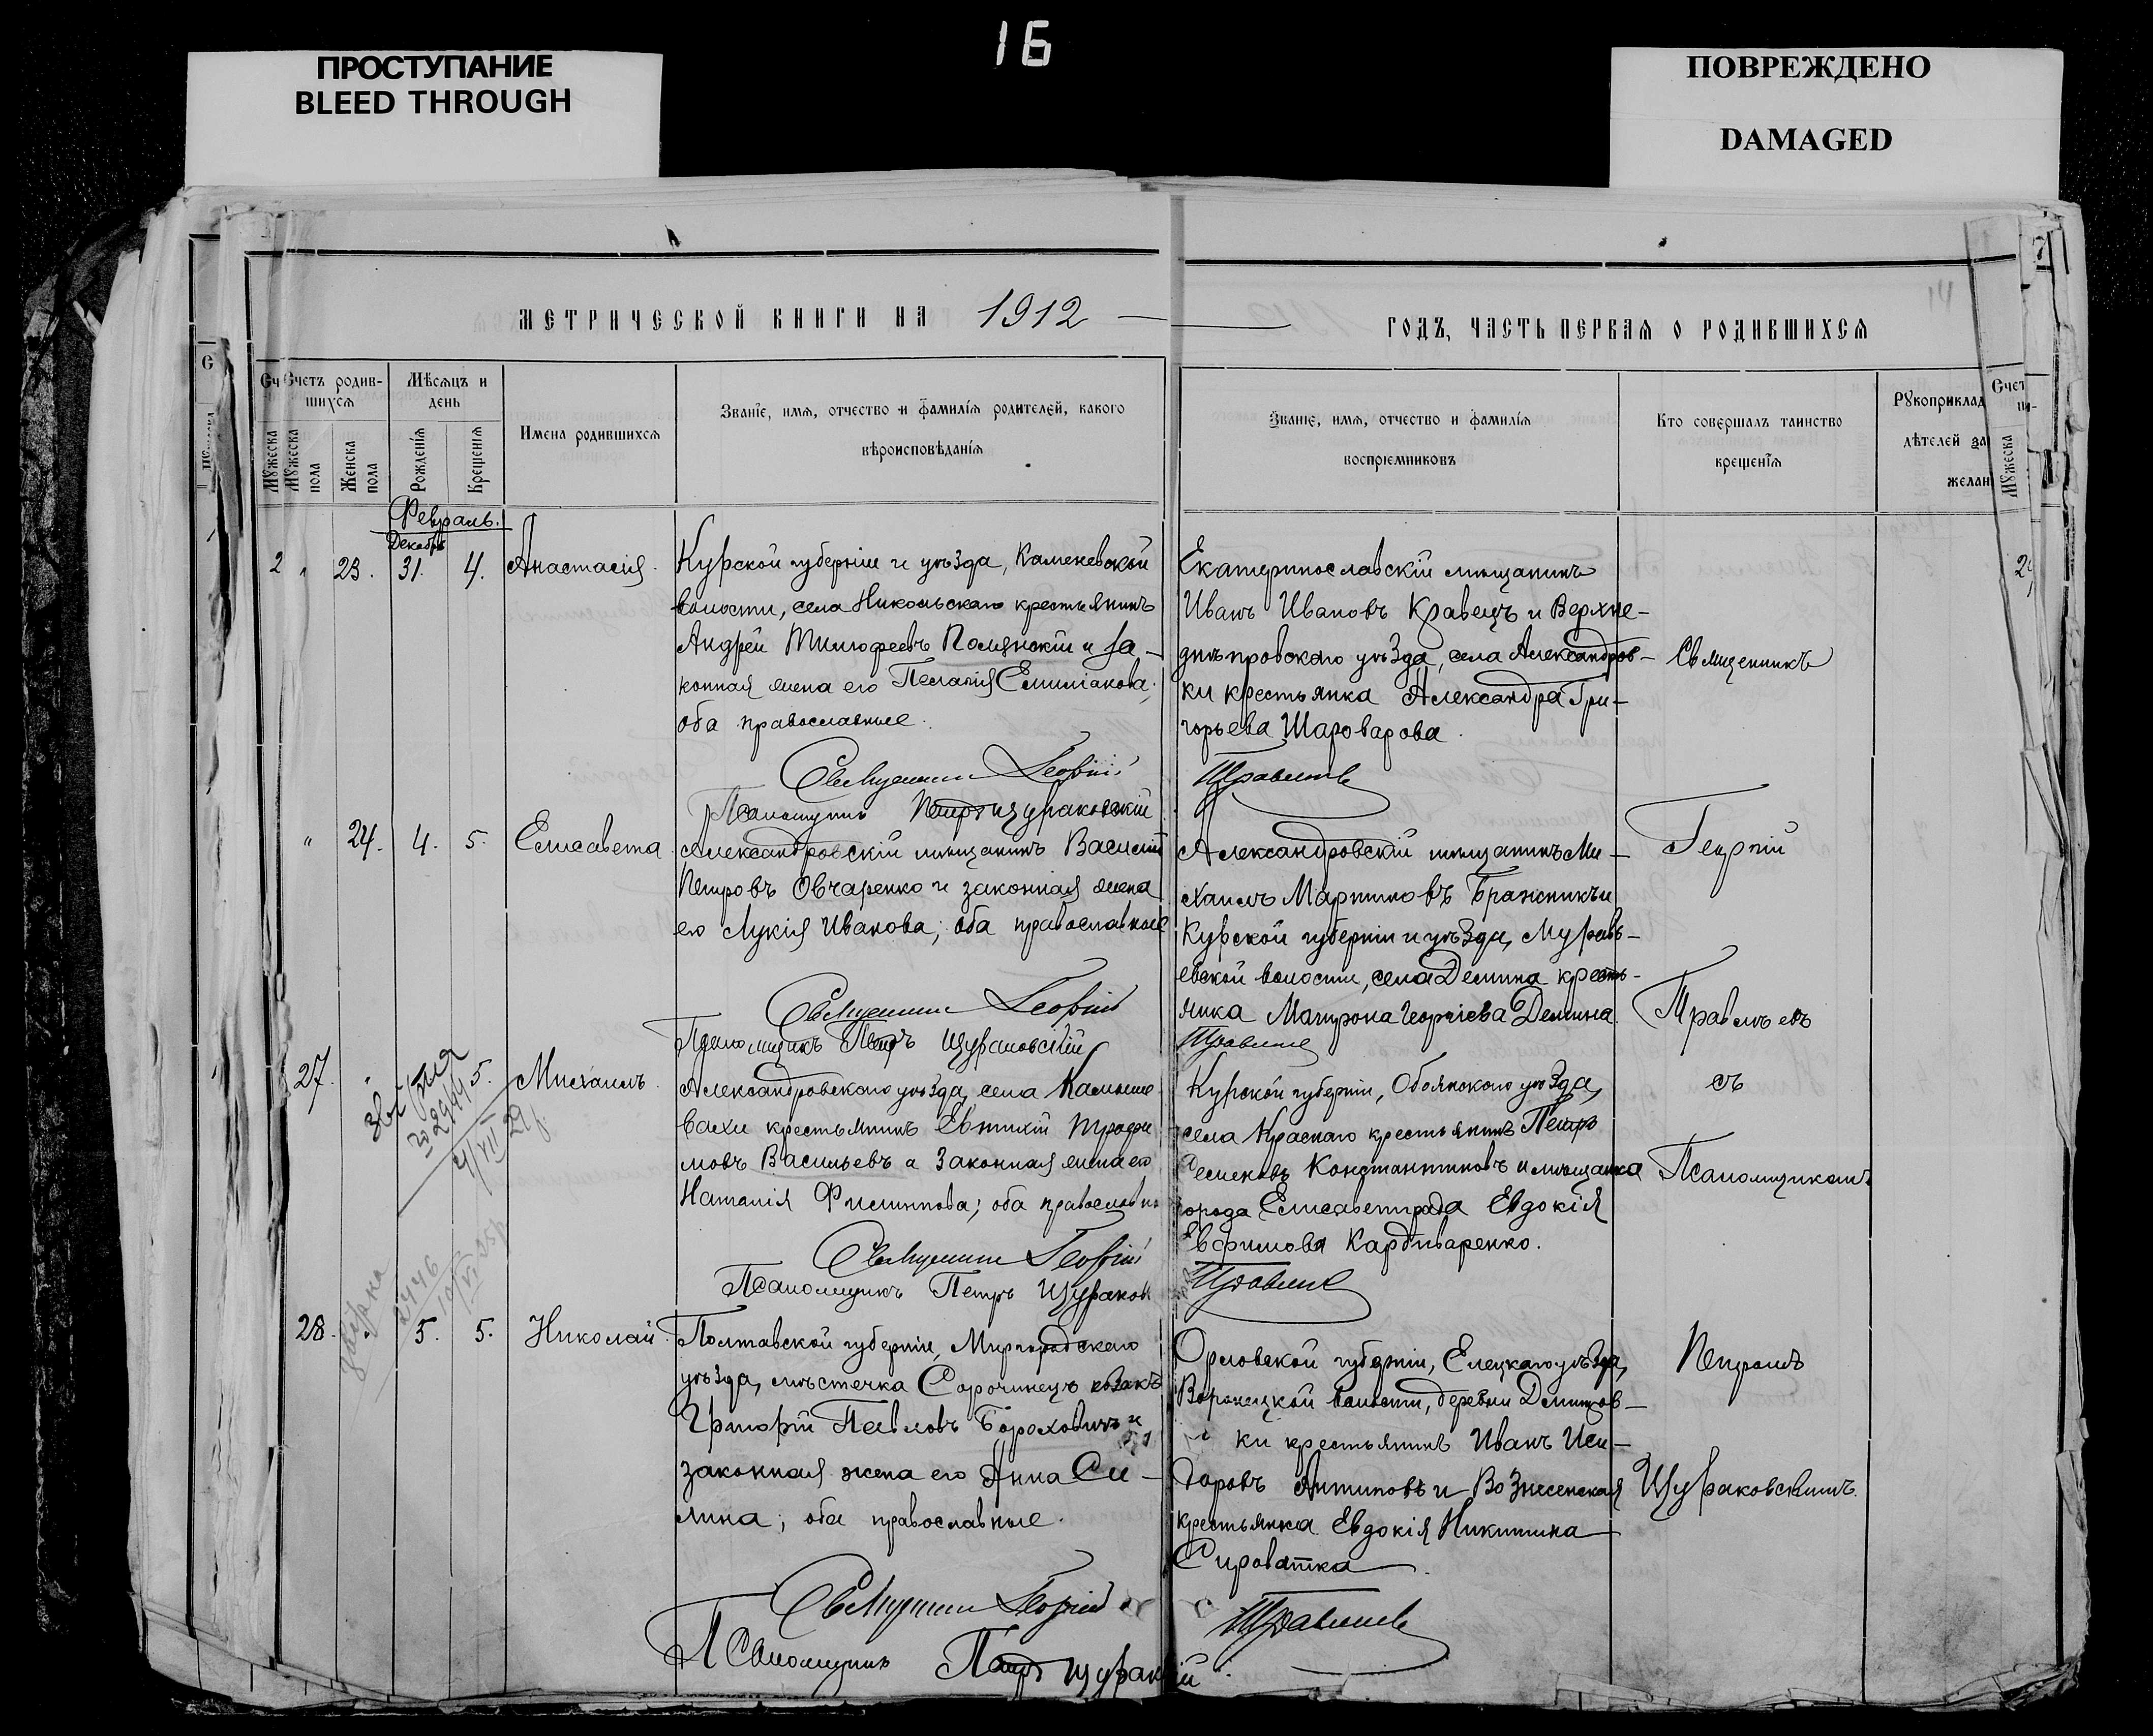 16
ПРОСТУПАНИЕ
BLEED THROUGH
ПОВРЕЖДЕНО
DAMAGED
МЕТРИЧЕСКОЙ КНИГИ НА 1912
ГОДЪ, ЧАСТЬ ПЕРВАЯ О РОДИВШИХСЯ
Счетъ родив-
шихся
Мужеска
пола
Женска
пола
Мѣсяцъ и
день
Рожденія
Крещенія
Имена родившихся
Званіе, имя, отчество и фамилія родителей, какого
вѣроисповѣданія
Званіе, имя, отчество и фамилія
воспріемниковъ
Кто совершалъ таинство
крещенія
Рукоприклад
дѣтелей за
желан
Февраль.
Декабрь
23. 31. 4. Анастасія.
Курской губерніи и уѣзда, Каменевской
волости, села Никольскаго крестьянинъ
Андрей Тимофеевъ Полянскій и за-
конная жена его Пелагія Емиліанова;
оба православные.
Священникъ Георгій
Псаломщикъ Петръ Щураковскій
Екатеринославскій мѣщанинъ
Иванъ Ивановъ Кравецъ и Верхне-
днѣпровскаго уѣзда, села Александров-
ки крестьянка Александра Гри-
горьева Шароварова.
Травлевъ
Священникъ
" 24. 4. 5. Елисавета
Александровскій мѣщанинъ Василій
Петровъ Овчаренко и законная жена
его Лукія Иванова; оба православные
Священникъ Георгій
Псаломщикъ Петръ Щураковскій
Александровскій мѣщанинъ Ми-
хаилъ Мартиновъ Бражникъ и
Курской губерніи и уѣзда, Муравь-
евской волости, села Демина кресть-
янка Матрона Георгіева Демина.
Георгій
Травлѣевъ
27. " 5. Михаилъ.
2944
4/VII 29
Александровскаго уѣзда, села Камыше
вахи крестьянинъ Евтихій Трофи
мовъ Васильевъ и законная жена его
Наталія Филиппова; оба православн
Священникъ Георгій
Псаломщикъ Петръ Щураков
Курской губерніи, Обоянскаго уѣзда,
села Краснаго крестьянинъ Петръ
Семеновъ Константиновъ и мѣщанка
города Елисаветграда Евдокія
Евфимова
съ
Псаломщикомъ
28. 5. 5. Николай.
2446
Полтавской губерніи, Миргородскаго
уѣзда, мѣстечка Сорочинецъ козакъ
Григорій Павловъ Бороховичъ и
законная жена его Анна Си-
лина; оба православные.
Священникъ Георгій
Псаломщикъ Петръ Щураков
Орловской губерніи, Елецкаго уѣзда,
Воронецкой волости, деревни Дмитров-
ки крестьянинъ Иванъ Иси-
доровъ Антиповъ и Вознесенская
крестьянка Евдокія Никитина
Сироватка.
Травлевъ
Петромъ
Щураковскимъ.